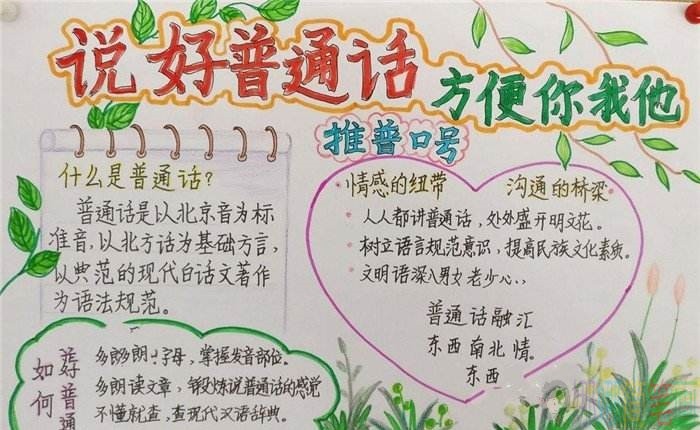 说好普通话
方便你我他
推普口号
什么是普通话?
普通话是以北京音为标
准音,以北方话为基础方言,
以典范的现代白话文著作
为语法规范。
情感的纽带 沟通的桥梁
人人都讲普通话,处处盛开明文花。
树立语言规范意识,提高民族文化素质。
文明语深入男女老少心..
普通话融汇
东西南北情。
东西
如何
好普通
多朗字母,掌握发音部位。
多朗读文章,锻炼说普通话的感觉
不懂就查,查现代汉语辞典。